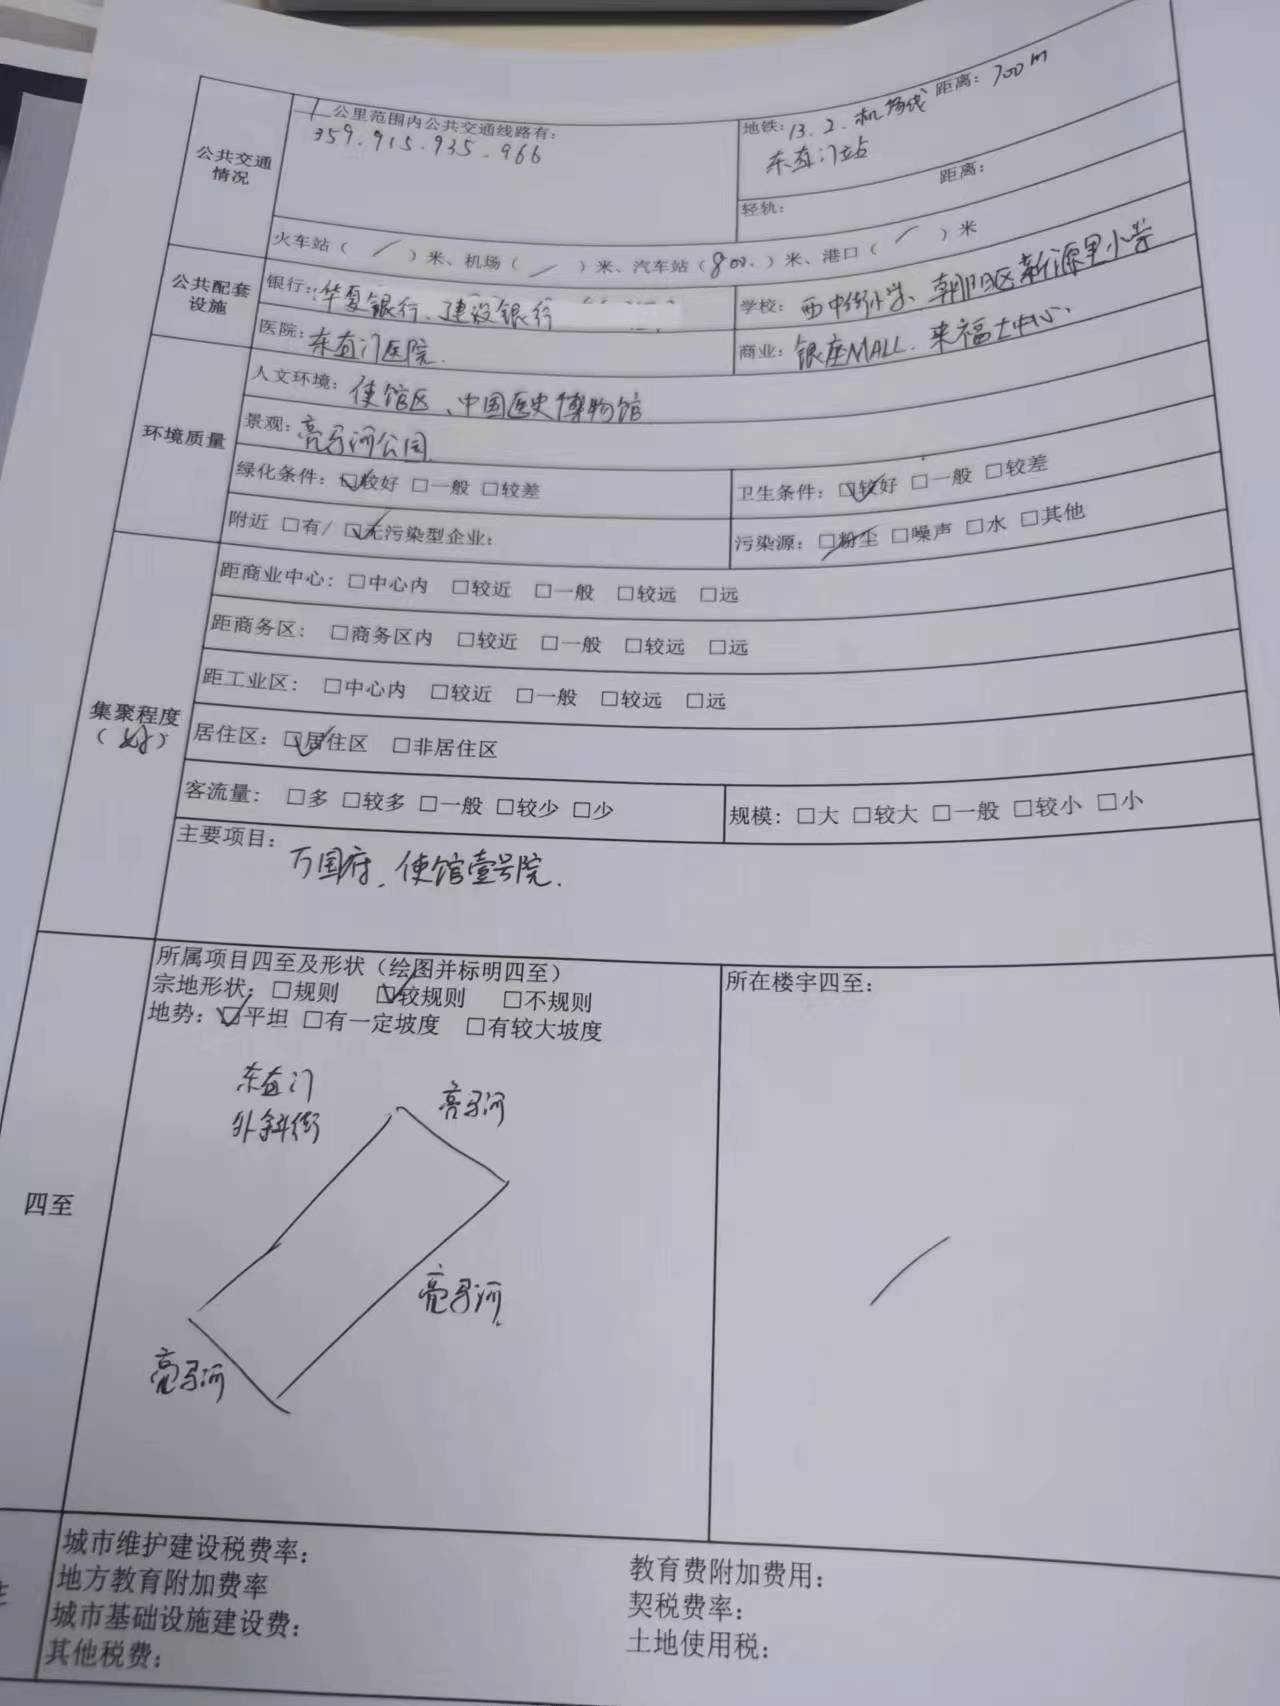 公共交通情况
1 公里范围内公共交通线路有:
359.915.935.966
地铁: 13.2.机场线 距离: 700m
东直门站
轻轨: 距离:
火车站( / )米、机场( / )米、汽车站(800.)米、港口( / )米
公共配套设施
银行: 华夏银行、建设银行
学校: 西中街小学、朝阳区新源里小学
医院: 东直门医院.
商业: 银座MALL. 来福士中心、
环境质量
人文环境: 使馆区、中国医史博物馆
景观: 亮马河公园.
绿化条件: ☑较好 □一般 □较差
卫生条件: ☑较好 □一般 □较差
附近 □有/ ☑无污染型企业:
污染源: □粉尘 □噪声 □水 □其他
集聚程度
(好)
距商业中心: □中心内 □较近 □一般 □较远 □远
距商务区: □商务区内 □较近 □一般 □较远 □远
距工业区: □中心内 □较近 □一般 □较远 □远
居住区: ☑居住区 □非居住区
客流量: □多 □较多 □一般 □较少 □少
规模: □大 □较大 □一般 □较小 □小
主要项目: 万国府、使馆壹号院.
四至
所属项目四至及形状(绘图并标明四至)
宗地形状: □规则 ☑较规则 □不规则
地势: ☑平坦 □有一定坡度 □有较大坡度
东直门
外斜街
亮马河
亮马河
亮马河
所在楼宇四至:
城市维护建设税费率:
地方教育附加费率
城市基础设施建设费:
其他税费:
教育费附加费用:
契税费率:
土地使用税: